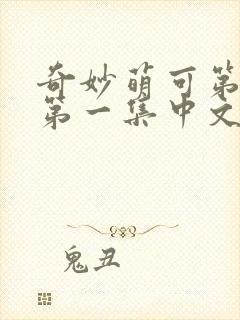 奇妙萌可第
第一集中文
鬼丑